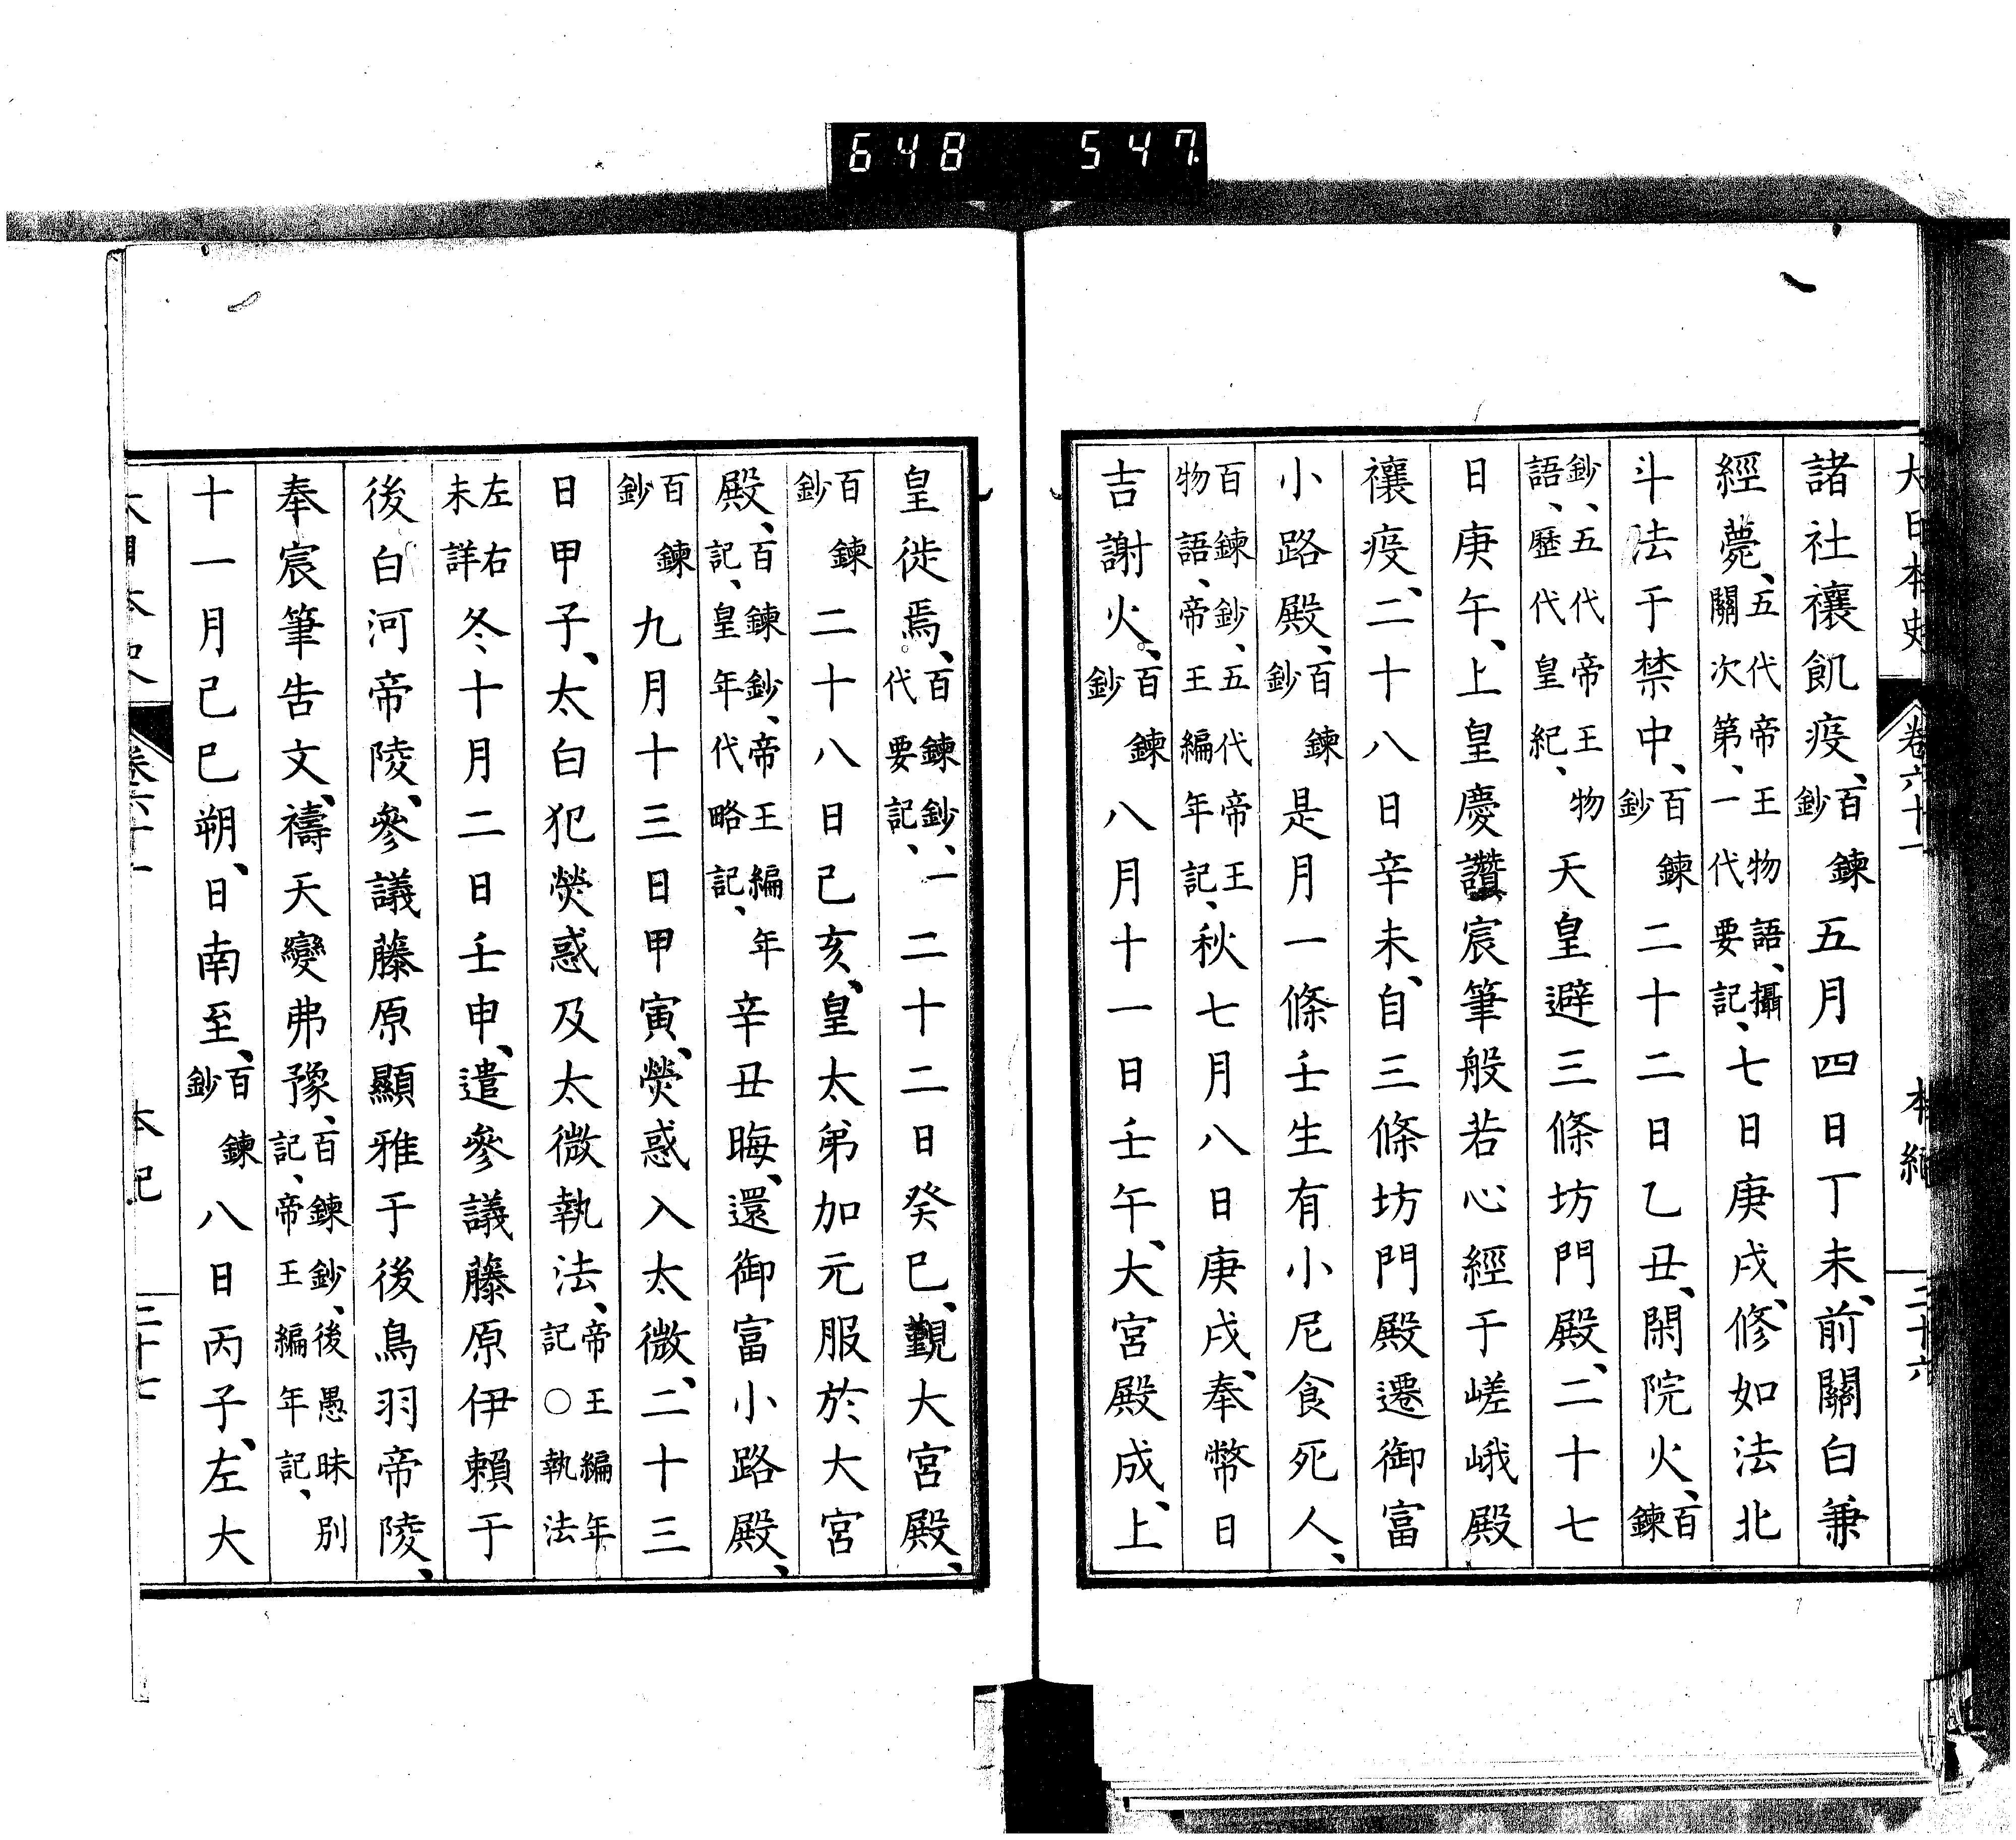 648 547
大日本史 卷六十一 本紀 二十六
諸社禳飢疫、百鍊鈔五月四日丁未、前關白兼
經薨、五代帝王物語、攝關次第、一代要記、七日庚戌、修如法北
斗法于禁中、百鍊鈔二十二日乙丑、閑院火、百鍊
鈔、五代帝王物語、歷代皇紀、天皇避三條坊門殿、二十七
日庚午、上皇慶讚宸筆般若心經于嵯峨殿
禳疫、二十八日辛未、自三條坊門殿遷御富
小路殿、百鍊鈔是月一條壬生有小尼食死人、
百鍊鈔、五代帝王物語、帝王編年記、秋七月八日庚戌、奉幣日
吉謝火、百鍊鈔八月十一日壬午、大宮殿成、上
皇徙焉、百鍊鈔、一代要記、二十二日癸巳、覲大宮殿、
百鍊鈔二十八日己亥、皇太弟加元服於大宮
殿、百鍊鈔、帝王編年記、皇年代略記、辛丑晦、還御富小路殿、
百鍊鈔九月十三日甲寅、熒惑入太微、二十三
日甲子、太白犯熒惑及太微執法、帝王編年記○執法
左右未詳冬、十月二日壬申、遣參議藤原伊賴于
後白河帝陵、參議藤原顯雅于後鳥羽帝陵、
奉宸筆告文、禱天變弗豫、百鍊鈔、後愚昧別記、帝王編年記、
十一月己巳朔、日南至、百鍊鈔八日丙子、左大
大日本史 卷六十一 本紀 二十七